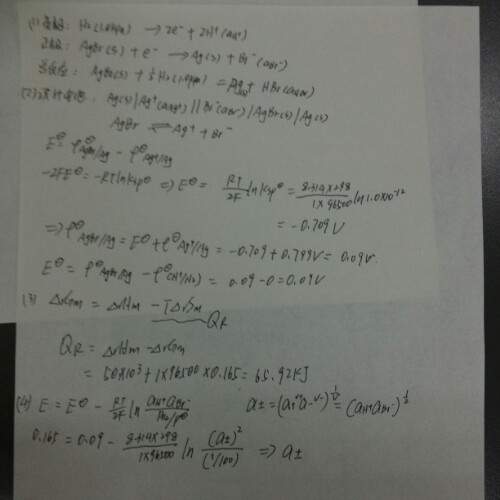 (1) 负极: H₂(100kPa) → 2e⁻ + 2H⁺(aH⁺)
正极: AgBr(s) + e⁻ → Ag(s) + Br⁻(aBr⁻)
总反应: AgBr(s) + ½H₂(100kPa) = Ag(s) + HBr(aHBr)
(2) 设计电池: Ag(s)|Ag⁺(aAg⁺)||Br⁻(aBr⁻)|AgBr(s)|Ag(s)
AgBr ⇌ Ag⁺ + Br⁻
E^⊖ = φ^⊖AgBr/Ag − φ^⊖Ag⁺/Ag
−ZFE^⊖ = −RTlnKsp^⊖ ⇒ E^⊖ = RT/ZF lnKsp^⊖ = 8.314×298/1×96500 ln1.0×10⁻¹²
= −0.709V
⇒ φ^⊖AgBr/Ag = E^⊖ + φ^⊖Ag⁺/Ag = −0.709 + 0.799V = 0.09V
E^⊖ = φ^⊖AgBr/Ag − φ^⊖(H⁺/H₂) = 0.09 − 0 = 0.09V
(3) ΔrGm = ΔrHm − TΔrSm
QR
QR = ΔrHm − ΔrGm
= 50×10³ + 1×96500×0.165 = 65.92KJ
(4) E = E^⊖ − RT/ZF ln aH⁺aBr⁻/PH₂/P^⊖ a± = (a₊^ν⁺a₋^ν⁻)^1/ν = (aH⁺aBr⁻)^½
0.165 = 0.09 − 8.314×298/1×96500 ln (a±)²/(1/100) ⇒ a±